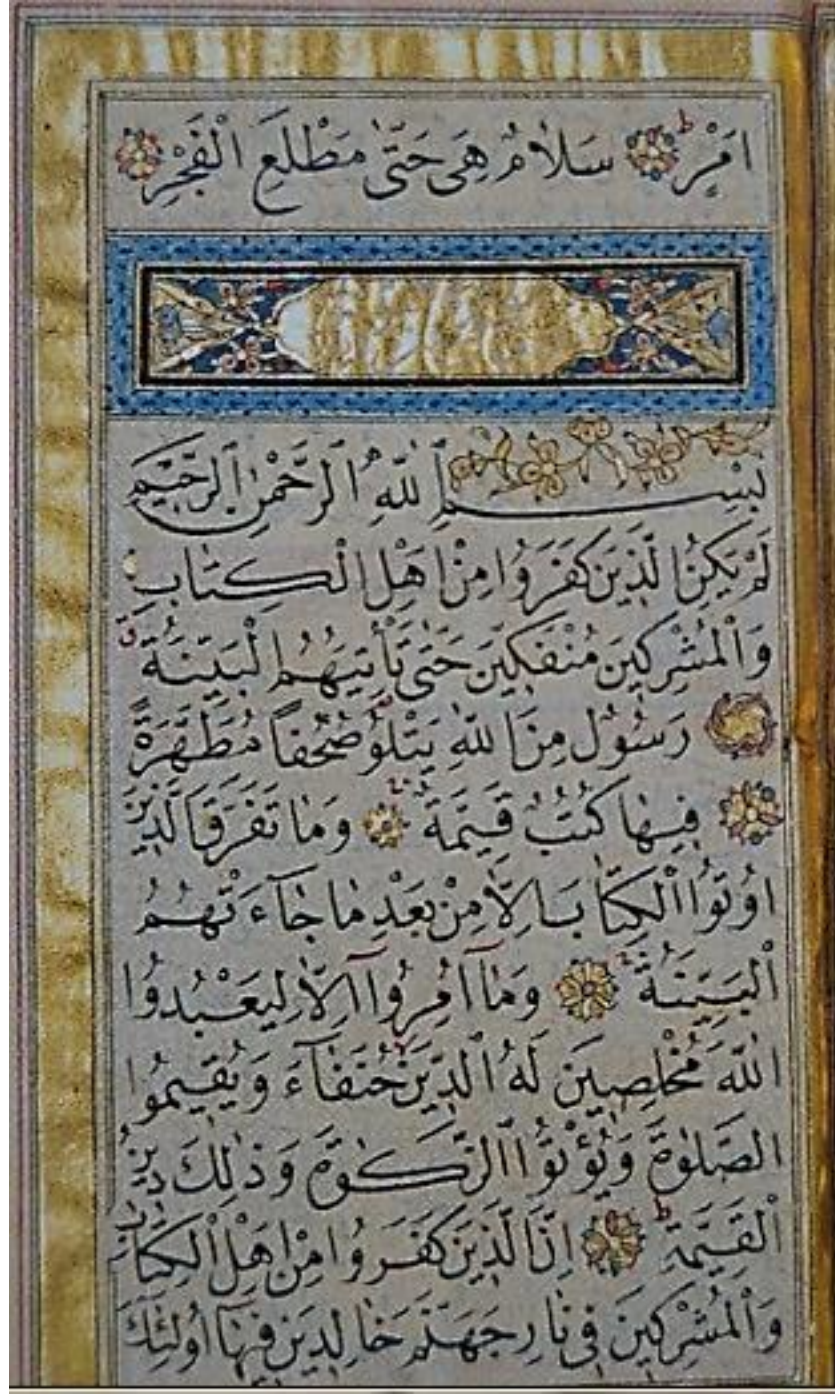 اَمْرٍ سَلَامٌ هِيَ حَتّٰى مَطْلَعِ الْفَجْرِ
بِسْمِ اللّٰهِ الرَّحْمٰنِ الرَّحِيمِ
لَمْ يَكُنِ الَّذِينَ كَفَرُوا مِنْ اَهْلِ الْكِتَابِ
وَالْمُشْرِكِينَ مُنْفَكِّينَ حَتّٰى تَأْتِيَهُمُ الْبَيِّنَةُ
رَسُولٌ مِنَ اللّٰهِ يَتْلُو صُحُفًا مُطَهَّرَةً
فِيهَا كُتُبٌ قَيِّمَةٌ وَمَا تَفَرَّقَ الَّذِينَ
اُوتُوا الْكِتَابَ اِلَّا مِنْ بَعْدِ مَا جَآءَتْهُمُ
الْبَيِّنَةُ وَمَآ اُمِرُوٓا اِلَّا لِيَعْبُدُوا
اللّٰهَ مُخْلِصِينَ لَهُ الدِّينَ حُنَفَآءَ وَيُقِيمُوا
الصَّلٰوةَ وَيُؤْتُوا الزَّكٰوةَ وَذٰلِكَ دِينُ
الْقَيِّمَةِ اِنَّ الَّذِينَ كَفَرُوا مِنْ اَهْلِ الْكِتَابِ
وَالْمُشْرِكِينَ فِي نَارِ جَهَنَّمَ خَالِدِينَ فِيهَا اُولٰٓئِكَ